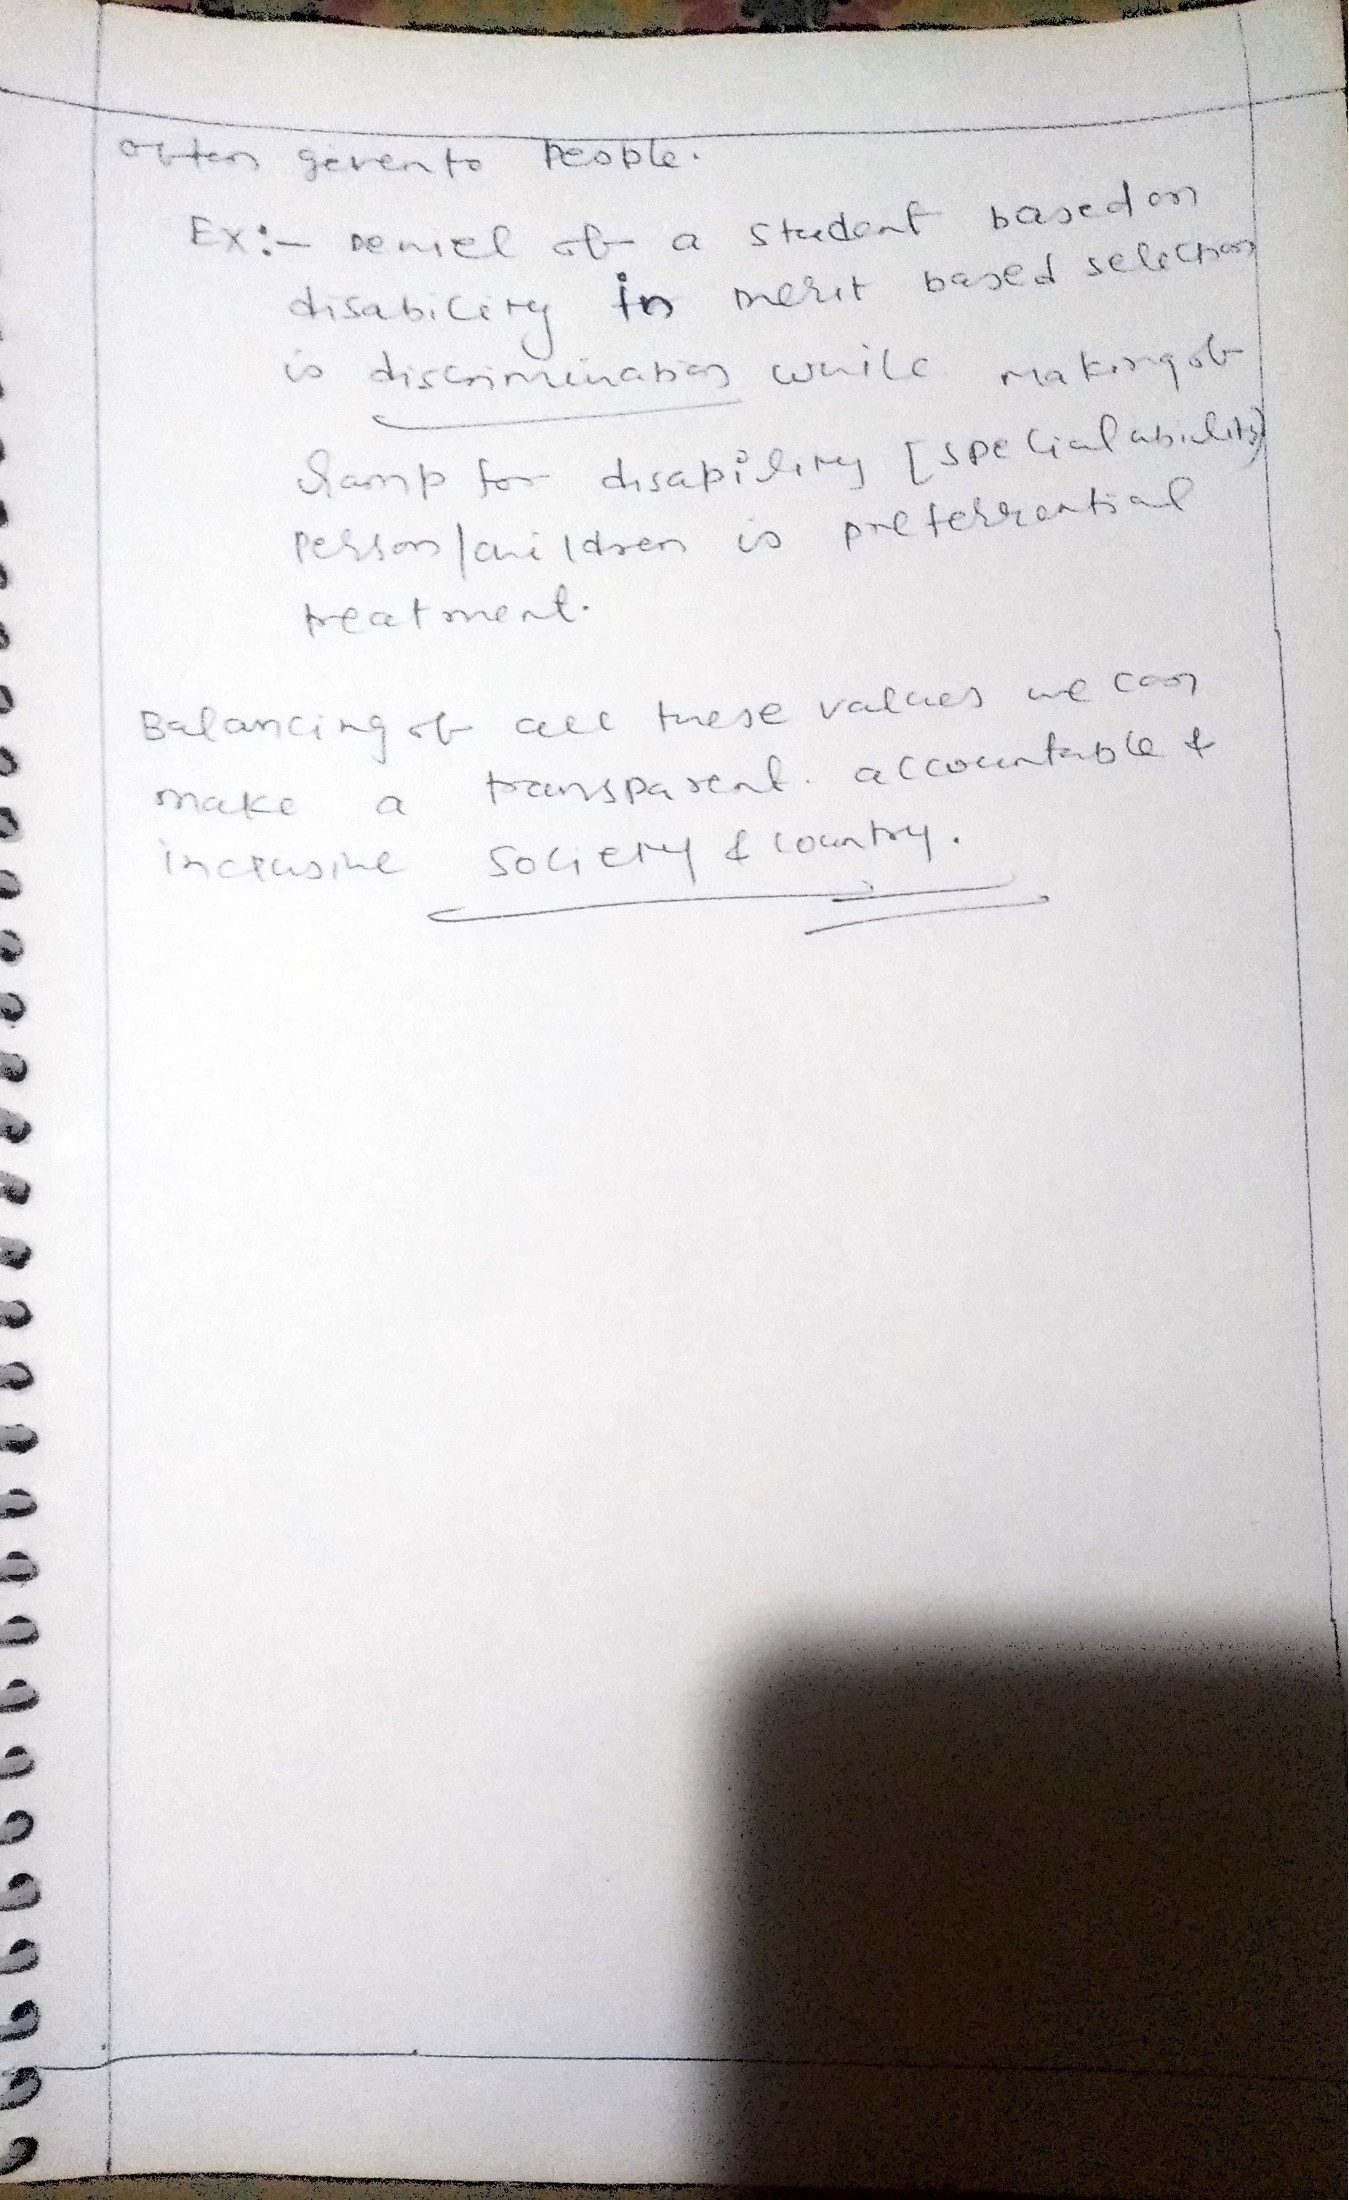 often given to people.
Ex:- Deniel of a student based on
disability in merit based selection
is discrimination while making of
Ramp for disability [special ability]
person/children is preferrential
treatment.
Balancing of all these values we can
make a transparent. accountable &
inclusive society & country.